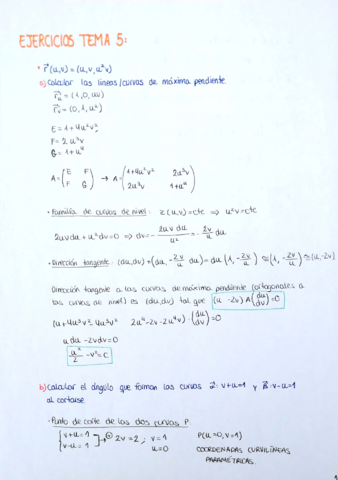 EJERCICIOS TEMA 5:
• r⃗(u,v) = (u,v,u²v)
a) Calcular las líneas/curvas de máxima pendiente
r⃗u = (1,0,uv)
r⃗v = (0,1,u²)
E = 1+4u²v²
F = 2u³v
G = 1+u⁴
A = (E F F G) → A = (1+4u²v² 2u³v 2u³v 1+u⁴)
· Familia de curvas de nivel: z(u,v) = cte ⇒ u²v = cte
2uvdu + u²dv = 0 ⇒ dv = -2uv du/u² = -2v/u du
· Dirección tangente: (du,dv) = (du, -2v/u du) = du (1, -2v/u) ≅ (1, -2v/u) ≅ (u,-2v)
Dirección tangente a las curvas de máxima pendiente (ortogonales a
las curvas de nivel) es (du,dv) tal que (u -2v) A (du dv) = 0
(u+4u³v²-4u³v² 2u⁴-2v-2u⁴v) · (du dv)
u du - 2vdv = 0
u²/2 - v² = C
b) Calcular el ángulo que forman las curvas α⃗: v+u=1 y β⃗: v-u=1
al cortarse.
· Punto de corte de las dos curvas P
{ v+u=1 v-u=1 } → 2v=2 ; v=1 P(u=0,v=1)
u=0 COORDENADAS CURVILÍNEAS
PARAMÉTRICAS.
1